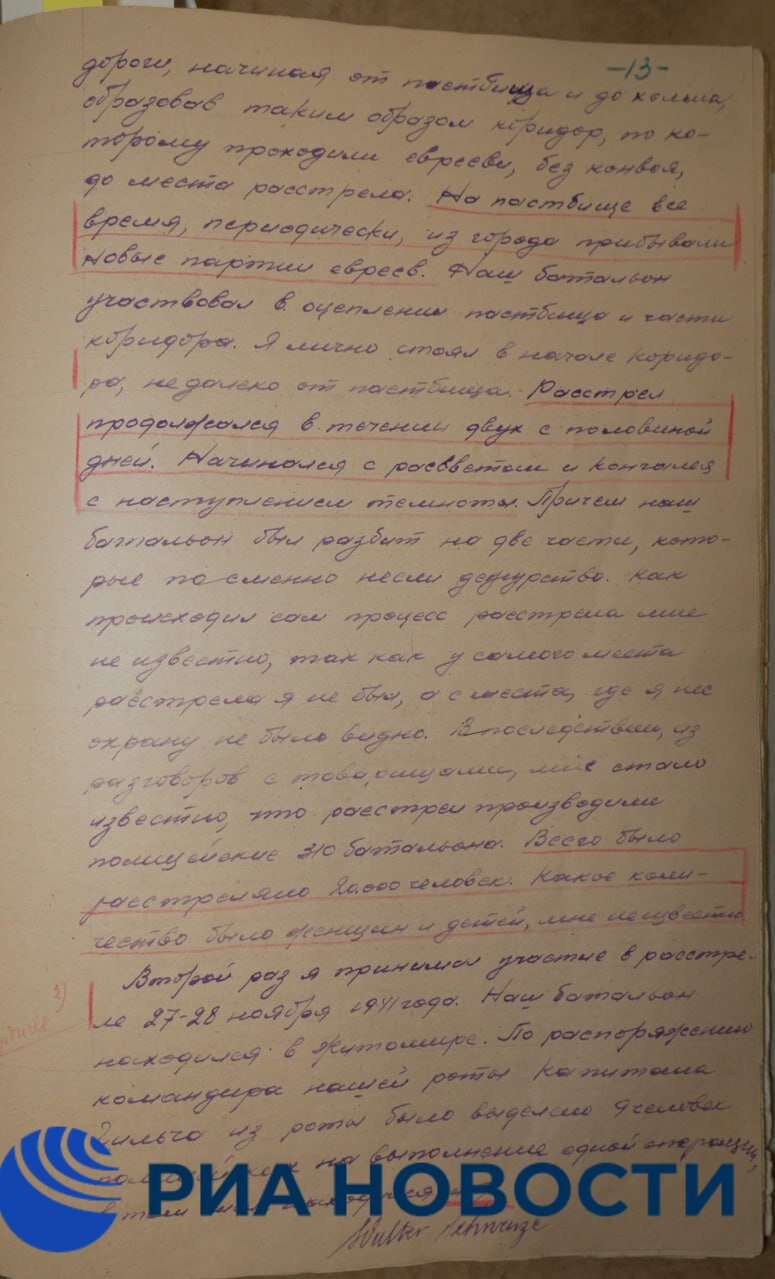 -13-
дороги, начиная от пастбища и до холма,
образовав таким образом коридор, по ко-
торому проходили евреев, без конвоя,
до места расстрела. На пастбище все
время, периодически, из города прибывали
новые партии евреев. Наш батальон
участвовал в оцеплении пастбища и части
коридора. Я лично стоял в начале коридо-
ра, недалеко от пастбища. Расстрел
продолжался в течении двух с половиной
дней. Начинался с рассветом и кончался
с наступлением темноты. Причем наш
батальон был разбит на две части, кото-
рые по сменно несли дежурство. Как
происходил сам процесс расстрела мне
не известно, так как у самого места
расстрела я не был, а с места, где я нес
охрану не было видно. Впоследствии, из
разговоров с товарищами, мне стало
известно, что расстрел производили
полицейские 310 батальона. Всего было
расстреляно 20.000 человек. Какое коли-
чество было женщин и детей, мне неизвестно
Второй раз я принимал участие в расстре-
2)
ле 27-28 ноября 1941 года. Наш батальон
находился в Житомире. По распоряжению
командира нашей роты капитана
из роты было выделено человек
на выполнение одной операции,
в том
РИА НОВОСТИ
Walter